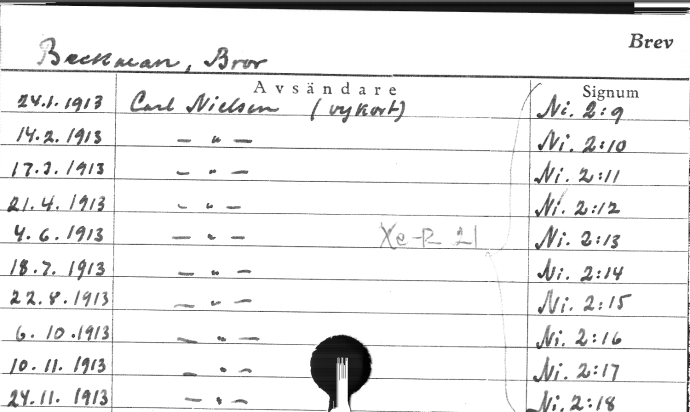 Brev
Beckman, Bror
Avsändare Signum
24.1.1913 Carl Nielsen (vykort) Ni. 2:9
14.2.1913 — " — Ni. 2:10
17.3.1913 — " — Ni. 2:11
21.4.1913 — " — Ni. 2:12
4.6.1913 — " — Xe-R 21 Ni. 2:13
18.7.1913 — " — Ni. 2:14
22.8.1913 — " — Ni. 2:15
6.10.1913 — " — Ni. 2:16
10.11.1913 — " — Ni. 2:17
24.11.1913 — " — Ni. 2:18